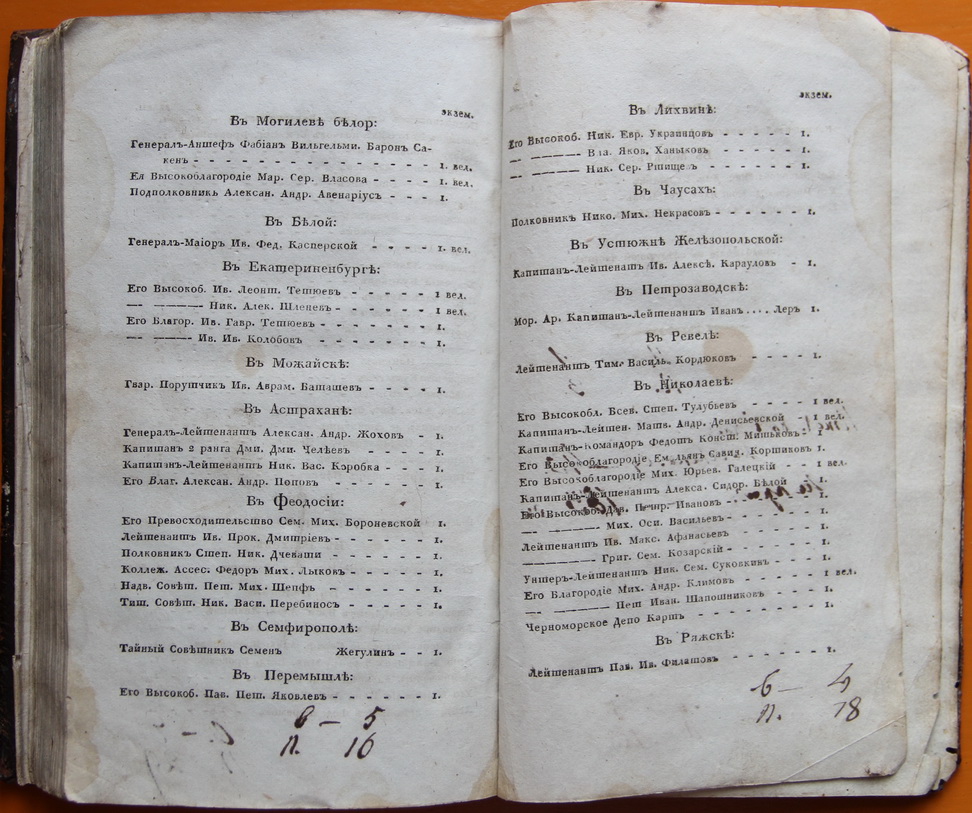 экзем.
Въ Могилевѣ бѣлор:
Генералъ-Аншефъ Фабіанъ Вильгельми. Баронъ Са-
кенъ - - - - - - - - - - - - - - 1. вел.
Ея Высокоблагородіе Мар. Сер. Власова - - - - 1. вел.
Подполковникъ Алексан. Андр. Авенаріусъ - - - 1.
Въ Бѣлой:
Генералъ-Маіоръ Ив. Фед. Касперской - - - - 1. вел.
Въ Екатериненбургѣ:
Его Высокоб. Ив. Леонт. Тетюевъ - - - - - 1 вел.
— ——— Ник. Алек. Шленевъ - - - - - - 1 вел.
Его Благор. Ив. Гавр. Тетюевъ - - - - - - 1.
— ——— Ив. Ив. Колобовъ - - - - - - 1.
Въ Можайскѣ:
Гвар. Порутчикъ Ив. Аврам. Баташевъ - - - - 1.
Въ Астраханѣ:
Генералъ-Лейтенантъ Алексан. Андр. Жоховъ - 1.
Капитан 2 ранга Дми. Дми. Челѣевъ - - - - 1.
Капитанъ-Лейтенантъ Ник. Вас. Коробка - - - 1.
Его Благ. Алексан. Андр. Поповъ - - - - - 1.
Въ Ѳеодосіи:
Его Превосходительство Сем. Мих. Бороневской 1.
Лейтенантъ Ив. Прок. Дмитріевъ - - - - - - 1.
Полковникъ Степ. Ник. Дчеваши - - - - - - 1.
Коллеж. Ассес. Федоръ Мих. Лыковъ - - - - - 1.
Надв. Совѣт. Пет. Мих. Штепфъ - - - - - - 1.
Тит. Совѣт. Ник. Васи. Перебиносъ - - - - - 1.
Въ Семфирополѣ:
Тайный Совѣтникъ Семенъ Жегулинъ - - 1.
Въ Перемышлѣ:
Его Высокоб. Пав. Пет. Яковлевъ - - - - - - 1.
в — 5
п. 16
экзем.
Въ Лихвинѣ:
Его Высокоб. Ник. Евр. Украинцовъ - - - - - 1.
— ——— Вла. Яков. Ханыковъ - - - - - 1.
— ——— Ник. Сер. Ртищевъ - - - - - - 1.
Въ Чаусахъ:
Полковникъ Нико. Мих. Некрасовъ - - - - - - 1.
Въ Устюжнѣ Желѣзопольской:
Капитанъ-Лейтенатъ Ив. Алексѣ. Карауловъ - 1.
Въ Петрозаводскѣ:
Мор. Ар. Капитанъ-Лейтенантъ Иванъ .... Леръ 1.
Въ Ревелѣ:
Лейтенантъ Тим. Василь. Кордюковъ - - - - 1.
Въ Николаевѣ:
Его Высокобл. Всев. Степ. Тулубьевъ - - - - 1 вел.
Капитанъ-Лейтен. Матв. Андр. Денисьевской - 1 вел.
Капитанъ-Командоръ Федотъ Конст. Мишьковъ - 1
Его Высокоблагородіе Емельянъ Савил. Коршиковъ 1.
Его Высокоблагородіе Мих. Юрьев. Галецкій - - 1 вел.
Капитанъ-Лейтенантъ Алекса. Сидор. Бѣлой 1.
Его Высокоб. Дав. Петр. Ивановъ - - - - - 1.
——— Мих. Оси. Васильевъ - - - - - - 1.
Лейтенантъ Ив. Макс. Афанасьевъ - - - - - 1.
——— Григ. Сем. Козарскій - - - - - - 1.
Унтеръ-Лейтенантъ Ник. Сем. Суковкинъ - - - 1.
Его Благородіе Мих. Андр. Климовъ - - - - - 1 вел.
— ——— Пет Иван. Шапошниковъ - - - - 1.
Черноморское Депо Картъ - - - - - - - 1.
Въ Ряжскѣ:
Лейтенантъ Пав. Ив. Филатовъ - - - - - - 1.
в — 4
п. 18